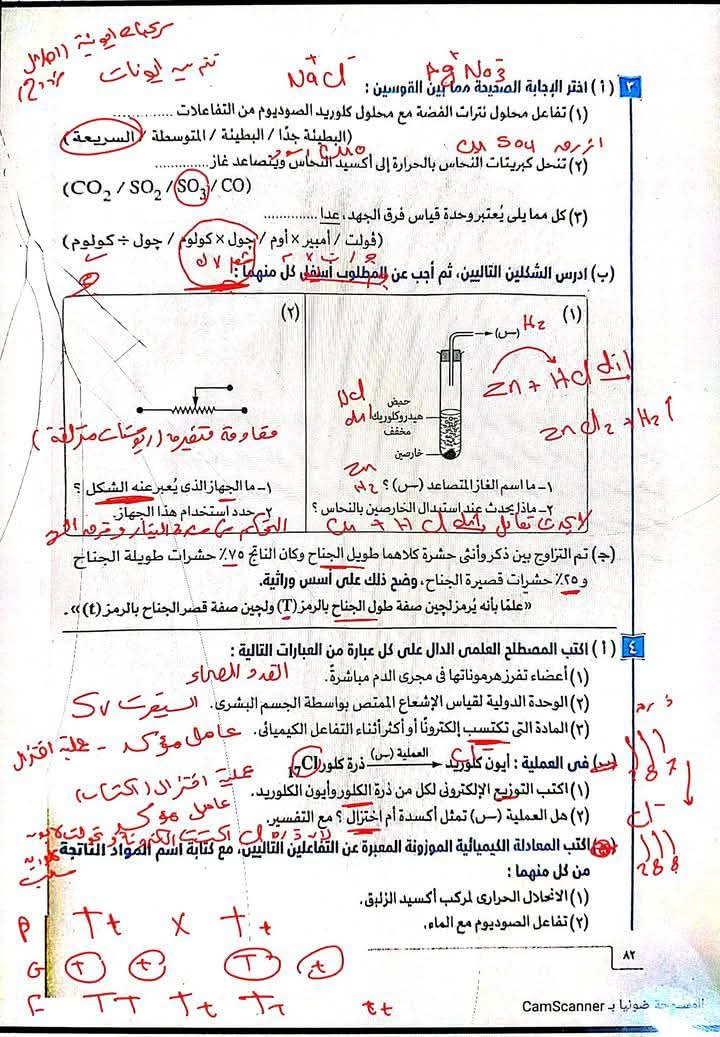 سريعة أيونية
تتم بين أيونات
Na⁺Cl⁻
Ag⁺NO₃
٣ (أ) اختر الإجابة الصحيحة مما بين القوسين :
(١) تفاعل محلول نترات الفضة مع محلول كلوريد الصوديوم من التفاعلات ..............
(البطيئة جدًا / البطيئة / المتوسطة / السريعة)
أزرق CuSO4
CuO أسود
(٢) تنحل كبريتات النحاس بالحرارة إلى أكسيد النحاس ويتصاعد غاز..............
(CO₂ / SO₂ / SO₃ / CO)
(٣) كل مما يلى يُعتبر وحدة قياس فرق الجهد، عدا ..............
(ڤولت / أمبير × أوم / چول × كولوم / چول ÷ كولوم)
(ب) ادرس الشكلين التاليين، ثم أجب عن المطلوب أسفل كل منهما :
(١)
(س)
H₂
Zn + HCl dil
ZnCl₂ + H₂↑
حمض
هيدروكلوريك
مخفف
HCl
dil
خارصين
Zn
١- ما اسم الغاز المتصاعد (س) ؟ H₂
٢- ماذا يحدث عند استبدال الخارصين بالنحاس ؟
لا يحدث تفاعل Cu + HCl dil
(٢)
مقاومة متغيرة (ريوستات منزلقة)
١- ما الجهاز الذى يُعبر عنه الشكل ؟
٢- حدد استخدام هذا الجهاز.
التحكم فى شدة التيار وفرق الجهد
(جـ) تم التزاوج بين ذكر وأنثى حشرة كلاهما طويل الجناح وكان الناتج ٧٥٪ حشرات طويلة الجناح
و ٢٥٪ حشرات قصيرة الجناح، وضح ذلك على أسس وراثية.
«علمًا بأنه يُرمز لچين صفة طول الجناح بالرمز (T) ولچين صفة قصر الجناح بالرمز (t)».
٤ (أ) اكتب المصطلح العلمى الدال على كل عبارة من العبارات التالية :
(١) أعضاء تفرز هرموناتها فى مجرى الدم مباشرةً. الغدد الصماء
(٢) الوحدة الدولية لقياس الإشعاع الممتص بواسطة الجسم البشرى. السيفرت Sv
(٣) المادة التى تكتسب إلكترونًا أو أكثر أثناء التفاعل الكيميائى. عامل مؤكسد - عملية اختزال
(ب) فى العملية : أيون كلوريد العملية (س) ذرة كلور ₁₇Cl
(١) اكتب التوزيع الإلكترونى لكل من ذرة الكلور وأيون الكلوريد.
(٢) هل العملية (س) تمثل أكسدة أم اختزال ؟ مع التفسير.
عملية اختزال (اكتساب)
عامل مؤكسد
2 8 7
Cl⁻
2 8 8
(جـ) اكتب المعادلة الكيميائية الموزونة المعبرة عن التفاعلين التاليين، مع كتابة اسم المواد الناتجة
من كل منهما :
(١) الانحلال الحرارى لمركب أكسيد الزئبق.
(٢) تفاعل الصوديوم مع الماء.
P Tt X Tt
G T t T t
F TT Tt Tt tt
٨٢
الممسوحة ضوئيا بـ CamScanner